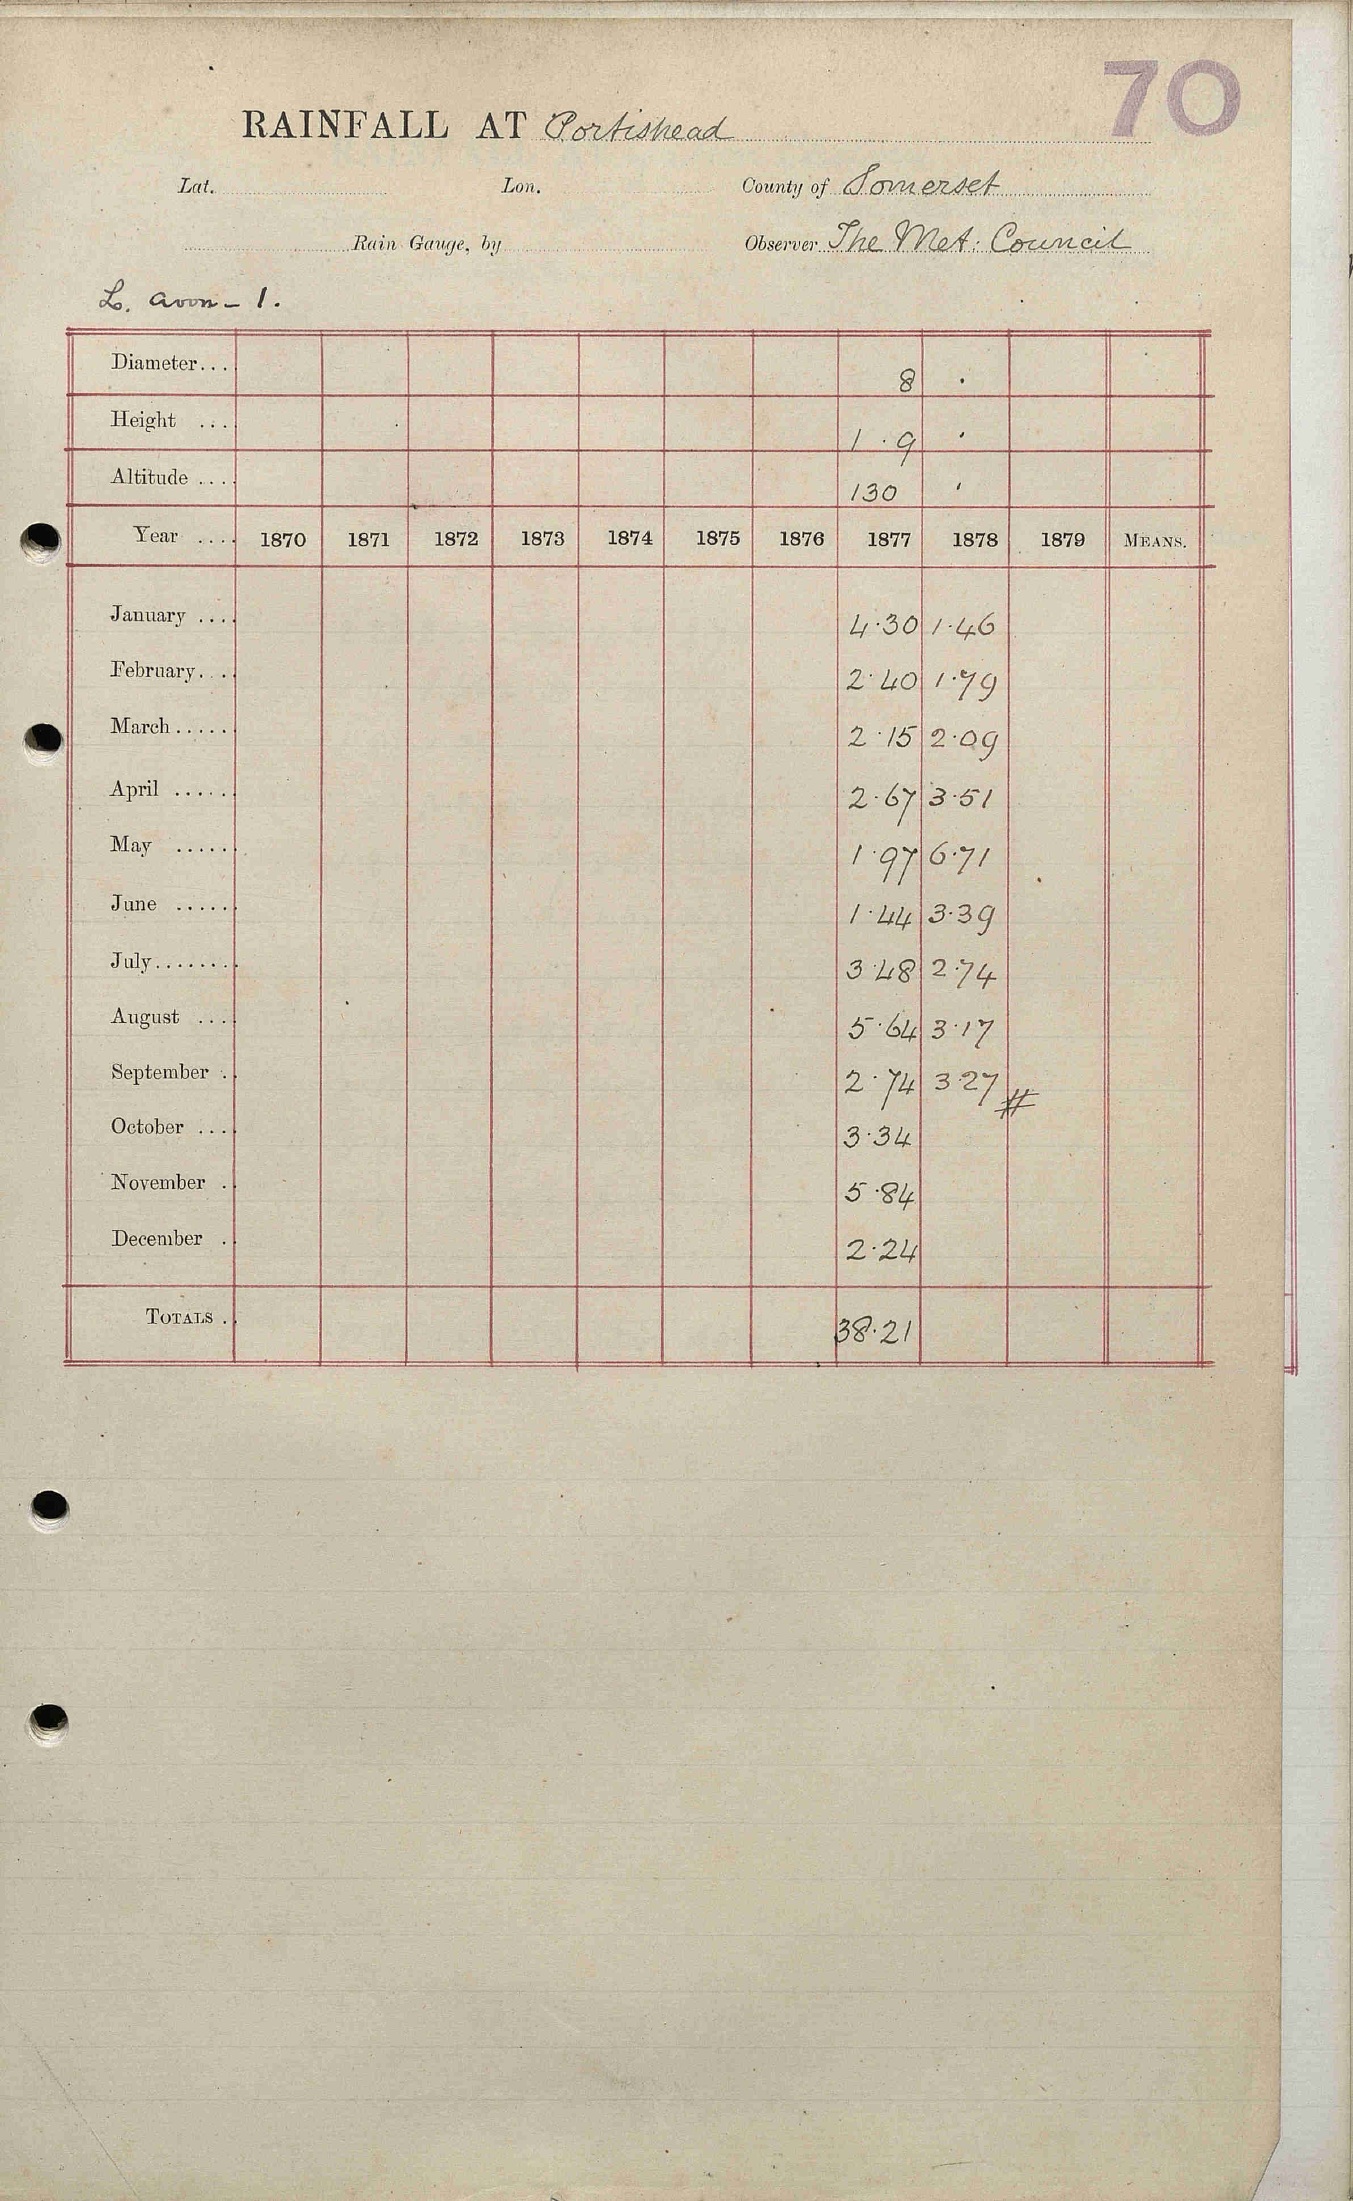 70
RAINFALL AT Portishead
Lat. Lon. County of Somerset
Rain Gauge, by Observer The Met. Council
L. Avon - 1.
Diameter... 8 .
Height ... 1 . 9 .
Altitude .... 130 '
Year .... 1870 1871 1872 1873 1874 1875 1876 1877 1878 1879 MEANS.
January .... 4.30 1.46
February... 2.40 1.79
March..... 2.15 2.09
April ..... 2.67 3.51
May ..... 1.97 6.71
June ..... 1.44 3.39
July........ 3.48 2.74
August .... 5.64 3.17
September . 2.74 3.27 #
October .... 3.34
November . 5.84
December . 2.24
TOTALS . 38.21